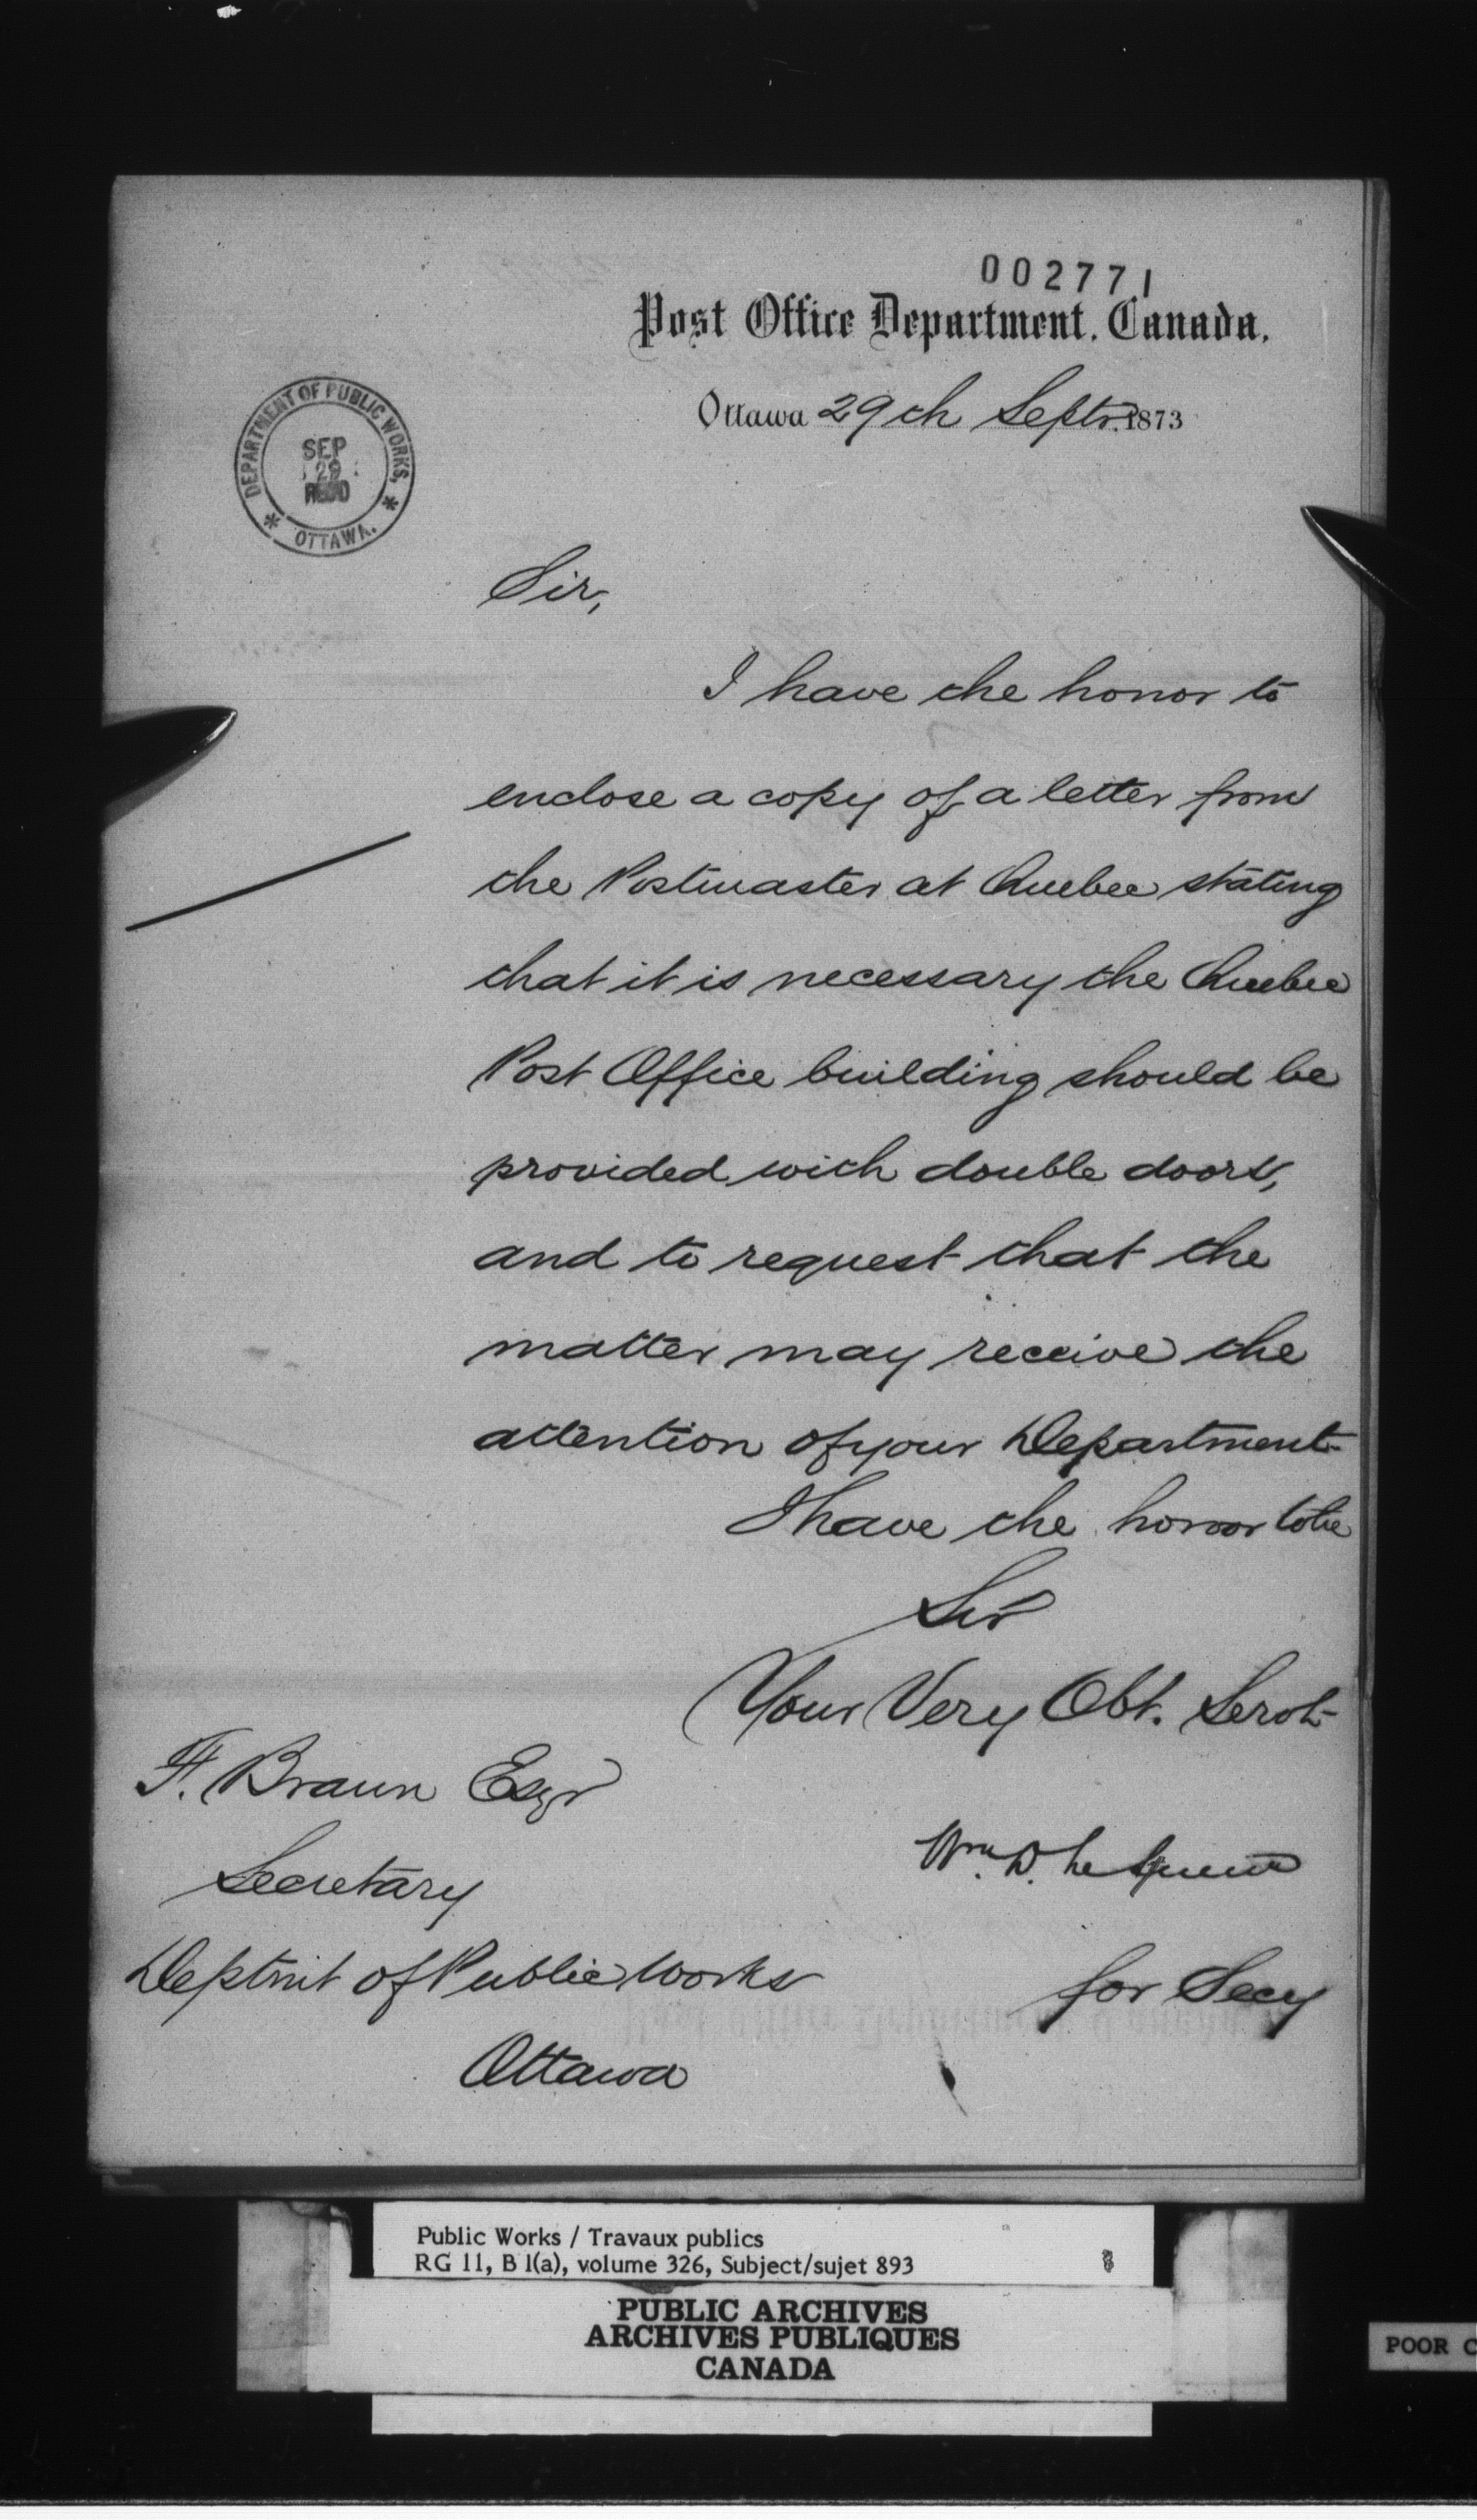 002771
Post Office Department, Canada,
Ottawa 29th Septr. 1873
DEPARTMENT OF PUBLIC WORKS,
SEP
29
REC'D
OTTAWA.
Sir,
I have the honor to
enclose a copy of a letter from
the Postmaster at Quebec stating
that it is necessary the Quebec
Post Office building should be
provided with double doors,
and to request that the
matter may receive the
attention of your Department.
I have the honor to be
Sir
Your Very Obt. Servt
F. Braun Esqr
Wm. D. LeSueur
Secretary
Deptmt of Public Works
for Secy
Ottawa
Public Works / Travaux publics
RG 11, B 1(a), volume 326, Subject/sujet 893
PUBLIC ARCHIVES
ARCHIVES PUBLIQUES
CANADA
POOR C